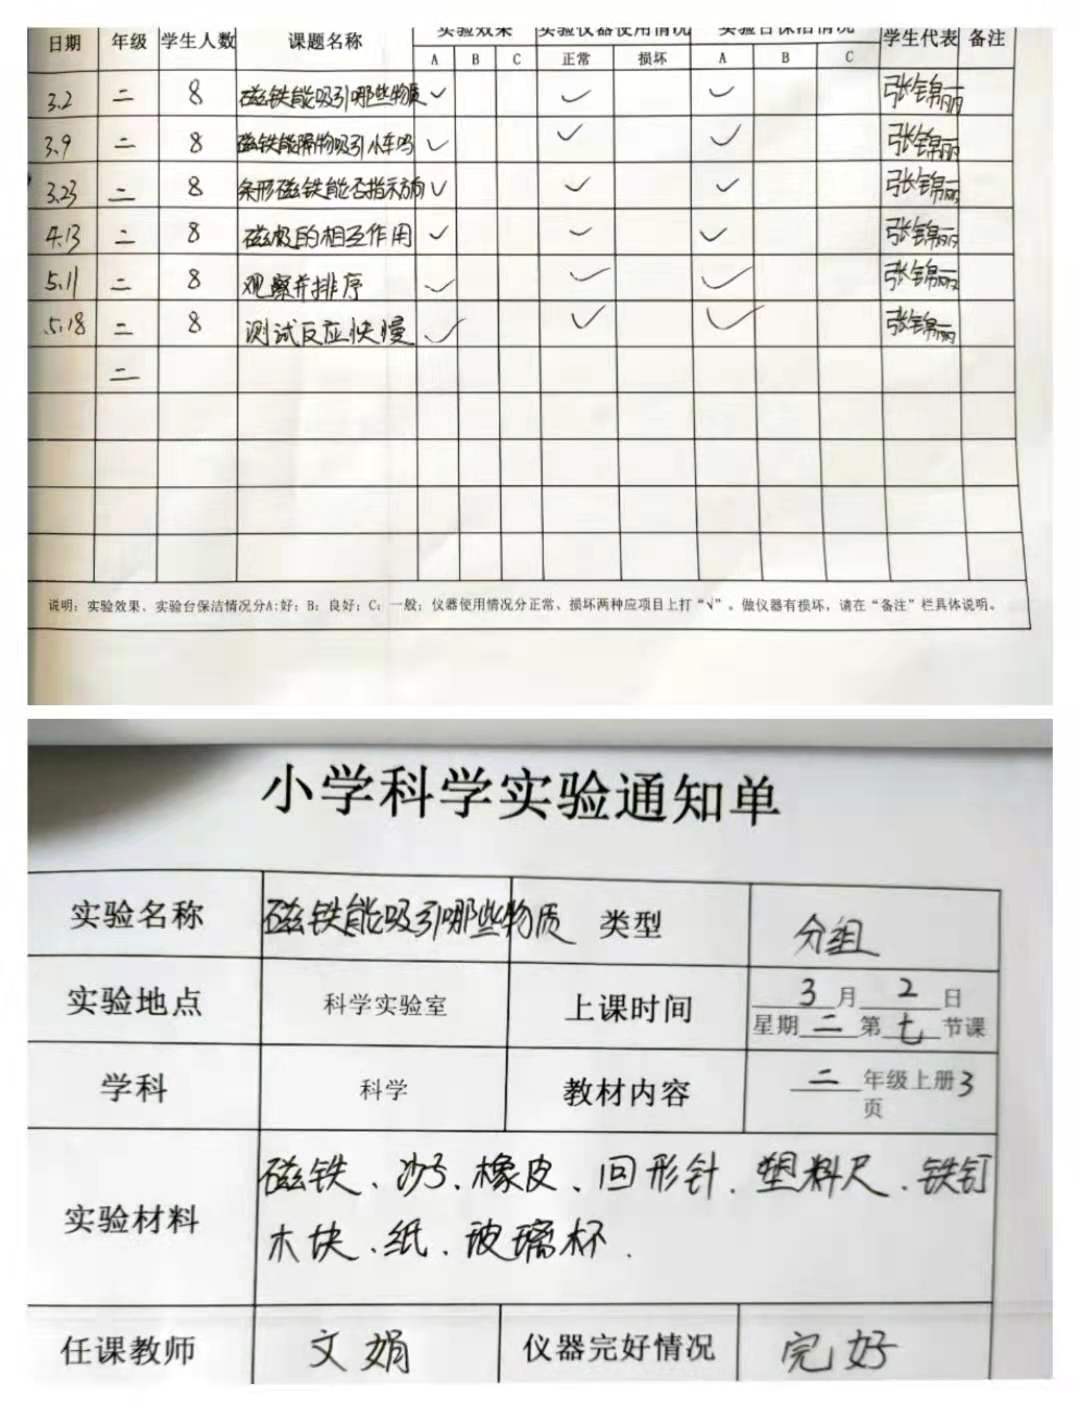 日期 年级 学生人数 课题名称 实验效果 实验仪器使用情况 实验台保洁情况 学生代表 备注
A B C 正常 损坏 A B C
3.2 二 8 磁铁能吸引哪些物质 ✓ ✓ ✓ 张锦丽
3.9 二 8 磁铁能隔物吸引小车吗 ✓ ✓ ✓ 张锦丽
3.23 二 8 条形磁铁能否指示方向 ✓ ✓ ✓ 张锦丽
4.13 二 8 磁极的相互作用 ✓ ✓ ✓ 张锦丽
5.11 二 8 观察并排序 ✓ ✓ ✓ 张锦丽
5.18 二 8 测试反应快慢 ✓ ✓ ✓ 张锦丽
二
说明：实验效果、实验台保洁情况分A：好；B：良好；C：一般；仪器使用情况分正常、损坏两种应项目上打“√”。做仪器有损坏，请在“备注”栏具体说明。
小学科学实验通知单
实验名称 磁铁能吸引哪些物质 类型 分组
实验地点 科学实验室 上课时间 3月2日
星期二第七节课
学科 科学 教材内容 二年级上册3
页
实验材料 磁铁、沙子、橡皮、回形针、塑料尺、铁钉
木块、纸、玻璃杯.
任课教师 文娟 仪器完好情况 完好